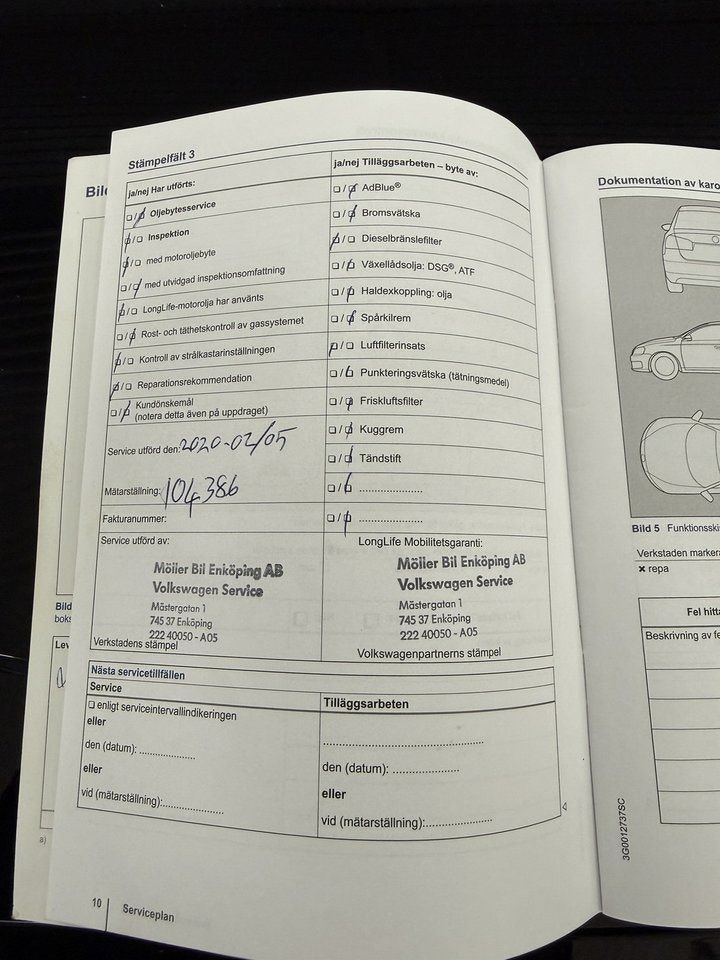 Stämpelfält 3
ja/nej Har utförts:
☐/☐ Oljebytesservice
☐/☐ Inspektion
☐/☐ med motoroljebyte
☐/☐ med utvidgad inspektionsomfattning
☐/☐ LongLife-motorolja har använts
☐/☐ Rost- och täthetskontroll av gassystemet
☐/☐ Kontroll av strålkastarinställningen
☐/☐ Reparationsrekommendation
☐/☐ Kundönskemål
(notera detta även på uppdraget)
Service utförd den: 2020-02/05
Mätarställning: 104386
Fakturanummer:
Service utförd av:
Möller Bil Enköping AB
Volkswagen Service
Mästergatan 1
745 37 Enköping
222 40050 - A05
Verkstadens stämpel
ja/nej Tilläggsarbeten – byte av:
☐/☐ AdBlue®
☐/☐ Bromsvätska
☐/☐ Dieselbränslefilter
☐/☐ Växellådsolja: DSG®, ATF
☐/☐ Haldexkoppling: olja
☐/☐ Spårkilrem
☐/☐ Luftfilterinsats
☐/☐ Punkteringsvätska (tätningsmedel)
☐/☐ Friskluftsfilter
☐/☐ Kuggrem
☐/☐ Tändstift
☐/☐ ......................
☐/☐ ......................
LongLife Mobilitetsgaranti:
Möller Bil Enköping AB
Volkswagen Service
Mästergatan 1
745 37 Enköping
222 40050 - A05
Volkswagenpartnerns stämpel
Nästa servicetillfällen
Service
☐ enligt serviceintervallindikeringen
eller
den (datum): ...................
eller
vid (mätarställning):.....................
Tilläggsarbeten
......................................................
den (datum): ......................
eller
vid (mätarställning):.......................
10
Serviceplan
Bild
boks
a)
Dokumentation av karo
Bild 5 Funktionsski
Verkstaden markera
✖ repa
Fel hitta
Beskrivning av fe
3G0012737SC